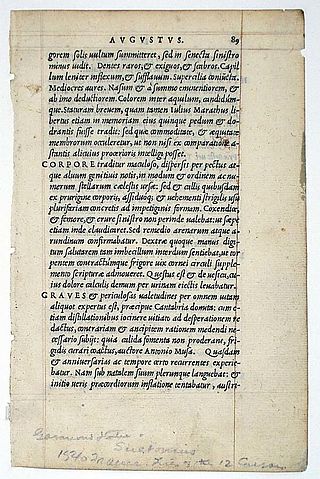 AVGVSTVS. 89
gorem solis uultum summitteret, sed in senecta sinistro
minus uidit. Dentes raros, & exiguos, & scabros. Capil
lum leniter inflexum, & sufflauum. Supercilia coniũcta.
Mediocres aures. Nasum & a summo eminentiorem, &
ab imo deductiorem. Colorem inter aquilum, candidúm-
que. Staturam breuem, quam tamen Iulius Marathus li-
bertus etiam in memoriam eius quinque pedum & do-
drantis fuisse tradit: sed quæ commoditate, & æquitate
membrorum occuleretur, ut non nisi ex comparatione a-
stantis alicuius procerioris intelligi posset.
CORPORE traditur maculoso, dispersis per pectus at-
que aluum genitiuis notis, in modum & ordinem ac nu-
merum stellarum cælestis ursæ: sed & callis quibusdam
ex prurigine corporis, assiduóq; & uehementi strigilis usu
plurifariam concretis ad impetiginis formam. Coxendice,
& femore, & crure sinistro non perinde ualebat: ut sæpe
etiam inde claudicaret. Sed remedio arenarum atque a-
rundinum confirmabatur. Dextræ quoque manus digi-
tum salutarem tam imbecillum interdum sentiebat, ut tor
pentem contractúmque frigore uix cornei circuli supple-
mento scripturæ admoueret. Questus est & de uesica, cu-
ius dolore calculis demum per urinam eiectis leuabatur.
GRAVES & periculosas ualetudines per omnem uitam
aliquot expertus est, præcipue Cantabria domita: cum e-
tiam distillationibus iocinere uitiato ad desperationem re
dactus, contrariam & ancipitem rationem medendi ne-
cessario subijt: quia calida fomenta non proderant, fri-
gidis curari coactus, auctore Antonio Musa. Quasdam
& anniuersarias ac tempore certo recurrentes experie-
batur. Nam sub natalem suum plerunque languebat: &
initio ueris præcordiorum inflatione tentabatur, austri-
Suetonius
1540 12